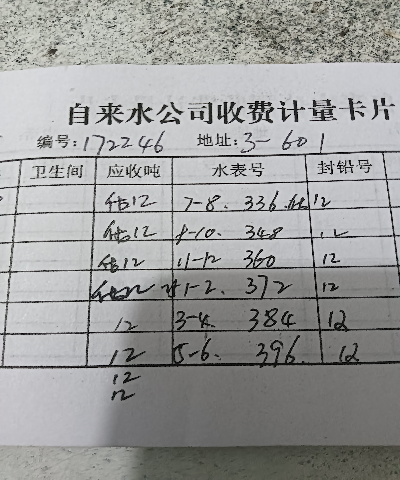 自来水公司收费计量卡片
编号:172246 地址:3-601
卫生间 应收吨 水表号 封铅号
估12 7-8. 336.估 12
估12 9-10. 348 12
估12 11-12 360 12
估12 1-2. 372 12
12 3-4. 384 12
12 5-6. 396. 12
12
12